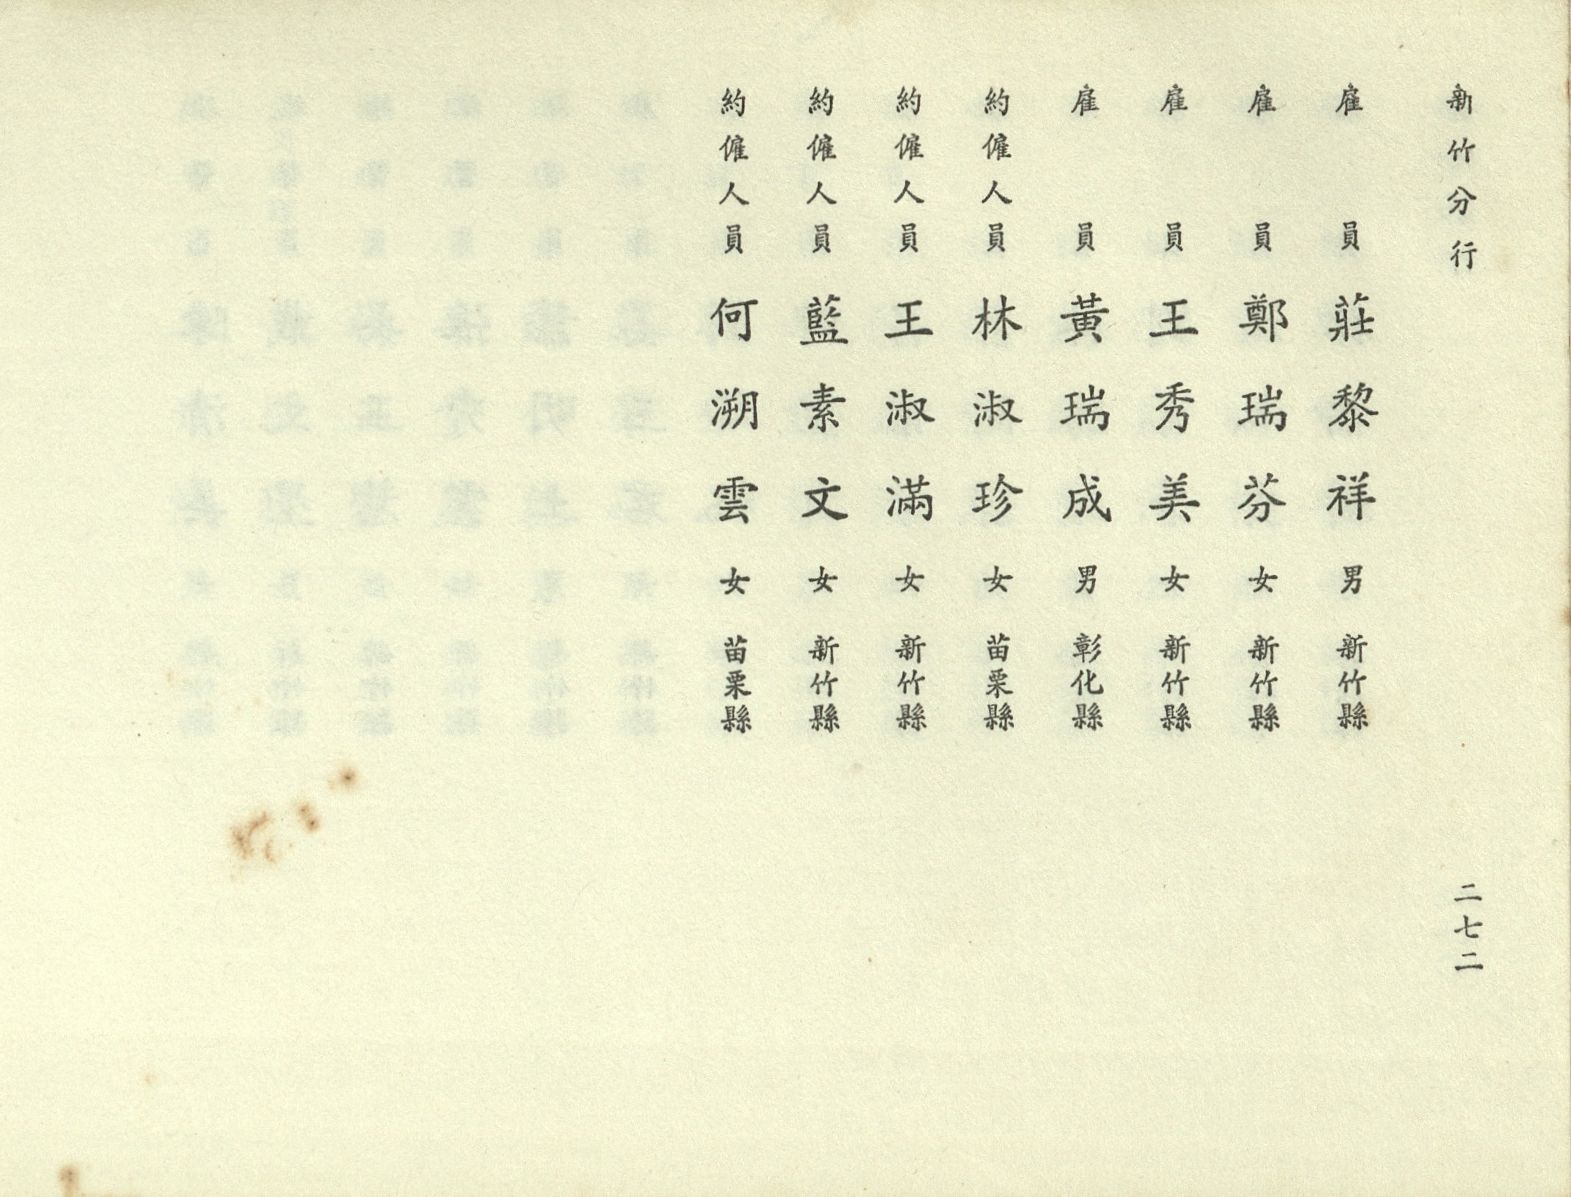 新竹分行
雇員 莊黎祥 男 新竹縣
雇員 鄭瑞芬 女 新竹縣
雇員 王秀美 女 新竹縣
雇員 黃瑞成 男 彰化縣
約僱人員 林淑珍 女 苗栗縣
約僱人員 王淑滿 女 新竹縣
約僱人員 藍素文 女 新竹縣
約僱人員 何溯雲 女 苗栗縣
二七二